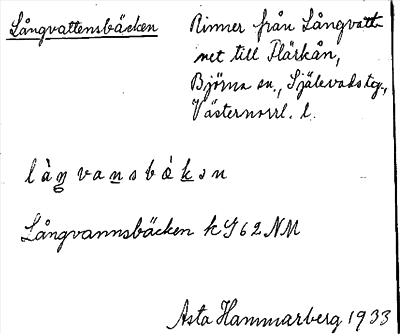 Långvattensbäcken
Rinner från Långvatt-
net till Flärkån,
Björna sn., Själevads tg.,
Västernorrl. l.
Långvannsbäcken kG62NM
Asta Hammarberg 1933